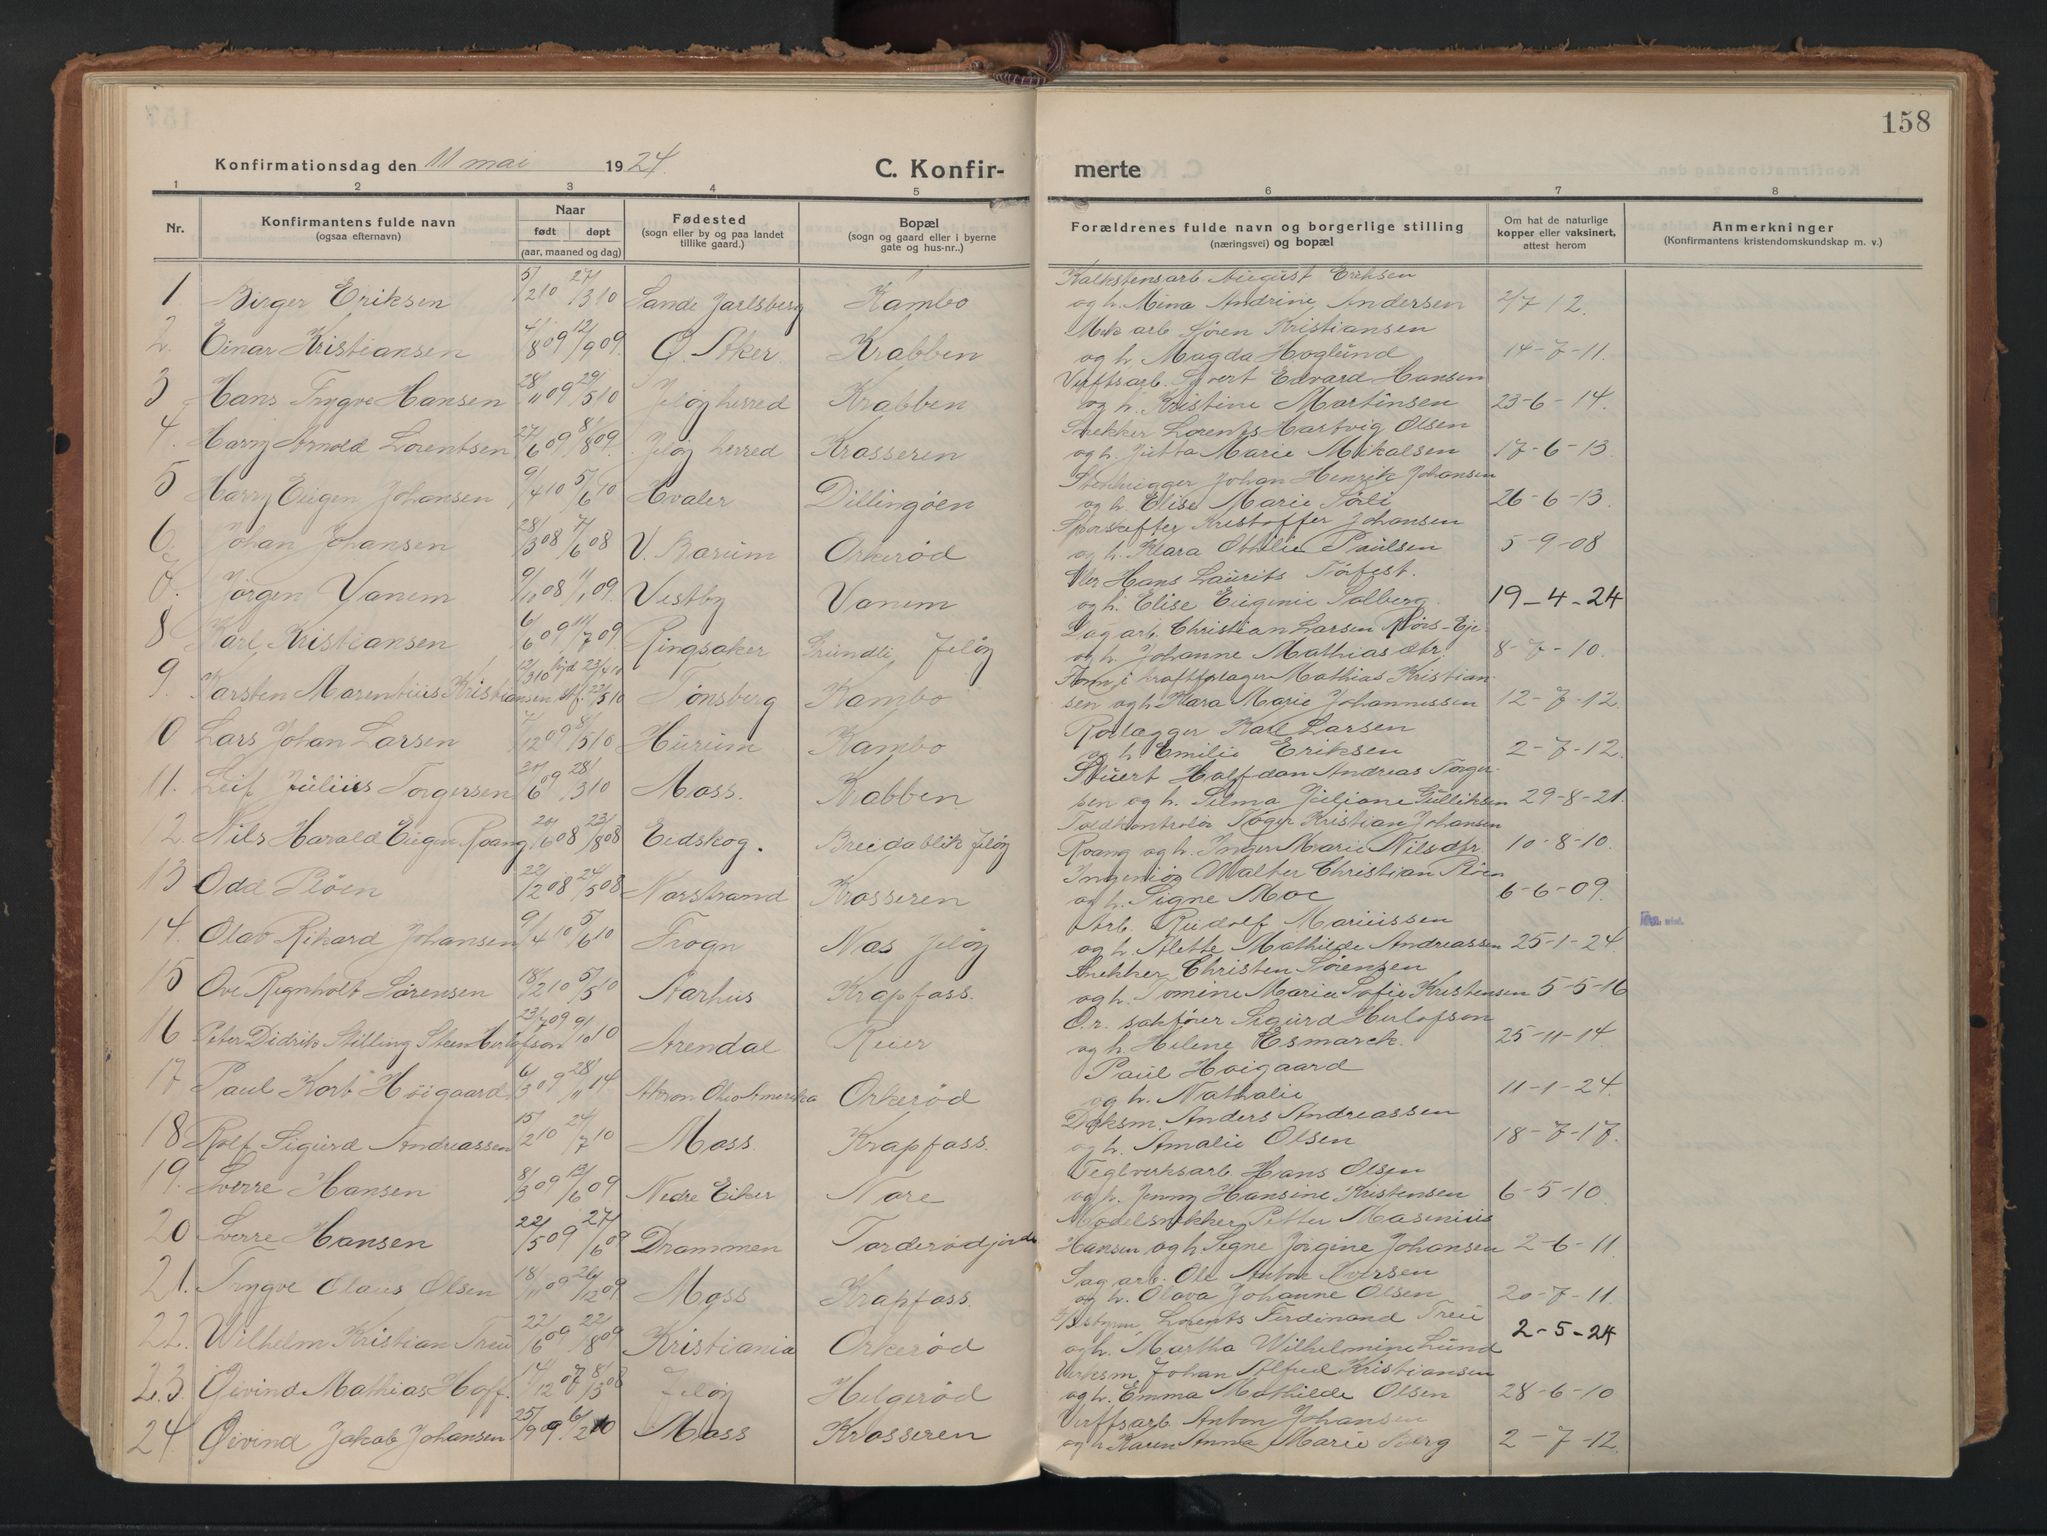 158
Konfirmationsdag den 11 mai 1924.
C. Konfir- merte
1 2 3 4 5 6 7 8
Nr.
Konfirmantens fulde navn
(ogsaa efternavn)
Naar
født døpt
(aar, maaned og dag)
Fødested
(sogn eller by og paa landet
tillike gaard.)
Bopæl
(sogn og gaard eller i byerne
gate og hus-nr.,)
Forældrenes fulde navn og borgerlige stilling
(næringsvei) og bopæl
Om hat de naturlige
kopper eller vaksinert,
attest herom
Anmerkninger
(Konfirmantens kristendomskundskap m. v.)
1 Birger Eriksen 5/2 10 27/3 10 Sande Jarlsberg Kambo Kalkstensarb August Eriksen
og h. Mina Andrine Andersen 2/7 12.
2. Einar Kristiansen 4/8 09 12/9 09. Ø. Aker. Krabben Mek arb Søren Kristiansen
og h. Magda Hoglund 14-7-11.
3 Hans Trygve Hansen 28/11 09 29/5 10 Jeløy herred Krabben Verftsarb. Syvert Edvard Hansen
og h. Kristine Martinsen 23-6-14.
4. Harry Arnold Lorentsen 27/6 09 8/8 09. Jeløy herred Krosseren Snekker Lorents Hartvig Olsen
og h. Jutta Marie Mikalsen 17-6-13.
5 Harry Eugen Johansen 9/4 10 5/6 10 Hvaler Dillingøen Stenhugger Johan Henrik Johansen
og h. Elise Marie Sørli 26-6-13.
6. Johan Johansen 28/3 08 7/6 08 V. Bærum Orkerød Kristoffer Johansen
og h. Klara Othilie Paulsen 5-9-08
7. Jørgen Vanem 9/11 08 11/1 09. Vestby Vanem Hans Laurits Torfest.
og h. Elise Eugenie Solberg. 19-4-24
8 Karl Kristiansen 6/6 09 11/7 09 Ringsaker Grundli Jeløy Sag arb. Christian Larsen
og h. Johanne Mathias dtr. 8-7-10.
9. Karsten Marentius Kristiansen 12/3 10 23/4 10 22/5 10 Tønsberg Kambo Form. i kraftforlager Mathias Kristian-
sen og h. Klara Marie Johannissen 12-7-12.
10 Lars Johan Larsen 7/12 09 8/5 10 Hurum Kambo Rørlægger Karl Larsen
og h. Emilie Eriksen 2-7-12.
11. Leif Julius Torgersen 30/6 09 28/3 10 Moss. Krabben Stuert Halfdan Andreas Torger-
sen og h. Selma Juliane Gulliksen 29-8-21.
12. Nils Harald Eugen Roang 20/6 08 23/8 08 Eidskog. Breidablik Jeløy Toldkontrolør Kristian Johansen
Roang og h. Inger Marie Nilsdtr. 10-8-10.
13 Odd Pløen 22/12 08 24/5 08 Norstrand Krosseren Ingeniør Walter Christian Pløen
og h. Signe Moe 6-6-09.
14. Olav Rikard Johansen 9/4 10 5/6 10 Frogn Nas Jeløy Arb. Rudolf Mariussen
og h. Alette Mathilde Andreassen 25-1-24
15 Ove Regnholt Sørensen 18/2 10 5/5 10 Aarhus Krapfoss. Snekker Christen Sørensen
og h. Tomine Marie Sofie Kristensen 5-5-16
16 Peter Didrik Stilling Steen Herlofson 23/7 09 9/10 10 Arendal Reier O.r. sakfører Sigurd Herlofson
og h. Helene Esmarck. 25-11-14.
17 Paul Kort Høigaard 6/3 09 28/11 14 Akron Ohio Amerika Orkerød Paul Høigaard
og h. Nathalie 11-1-24.
18 Rolf Sigurd Andreassen 15/2 10 24/7 10 Moss Krapfoss. Anders Andreassen
og h. Amalie Olsen 18-7-17.
19. Sverre Hansen 8/3 09 13/6 09 Nedre Eiker Nore Teglverksarb Hans Olsen
og h. Jenny Hansine Kristensen 6-5-10.
20 Sverre Hansen 22/5 09 27/6 09 Drammen Torderødjordet Modelsnekker Petter Masenius
Hansen og h. Signe Jørgine Johansen 2-6-11.
21. Trygve Olaus Olsen 18/11 09 26/12 09 Moss Krapfoss. Sag arb. Ole Anton Iversen
og h. Olava Johanne Olsen 20-7-11.
22. Wilhelm Kristian Treu 22/6 09 22/8 09 Kristiania Orkerød Lorents Ferdinand Treu
og h. Martha Wilhelmine Lund 2-5-24
23. Øivind Mathias Hoff. 14/12 07 8/3 08 Jeløy Helgerød Verksm Johan Alfred Kristiansen
og h. Emma Mathilde Olsen 28-6-10
24. Øivind Jakob Johansen 25/9 09. 6/2 10 Moss Krosseren Verftsarb. Anton Johansen
og h. Karen Anna Marie Berg 2-7-12.